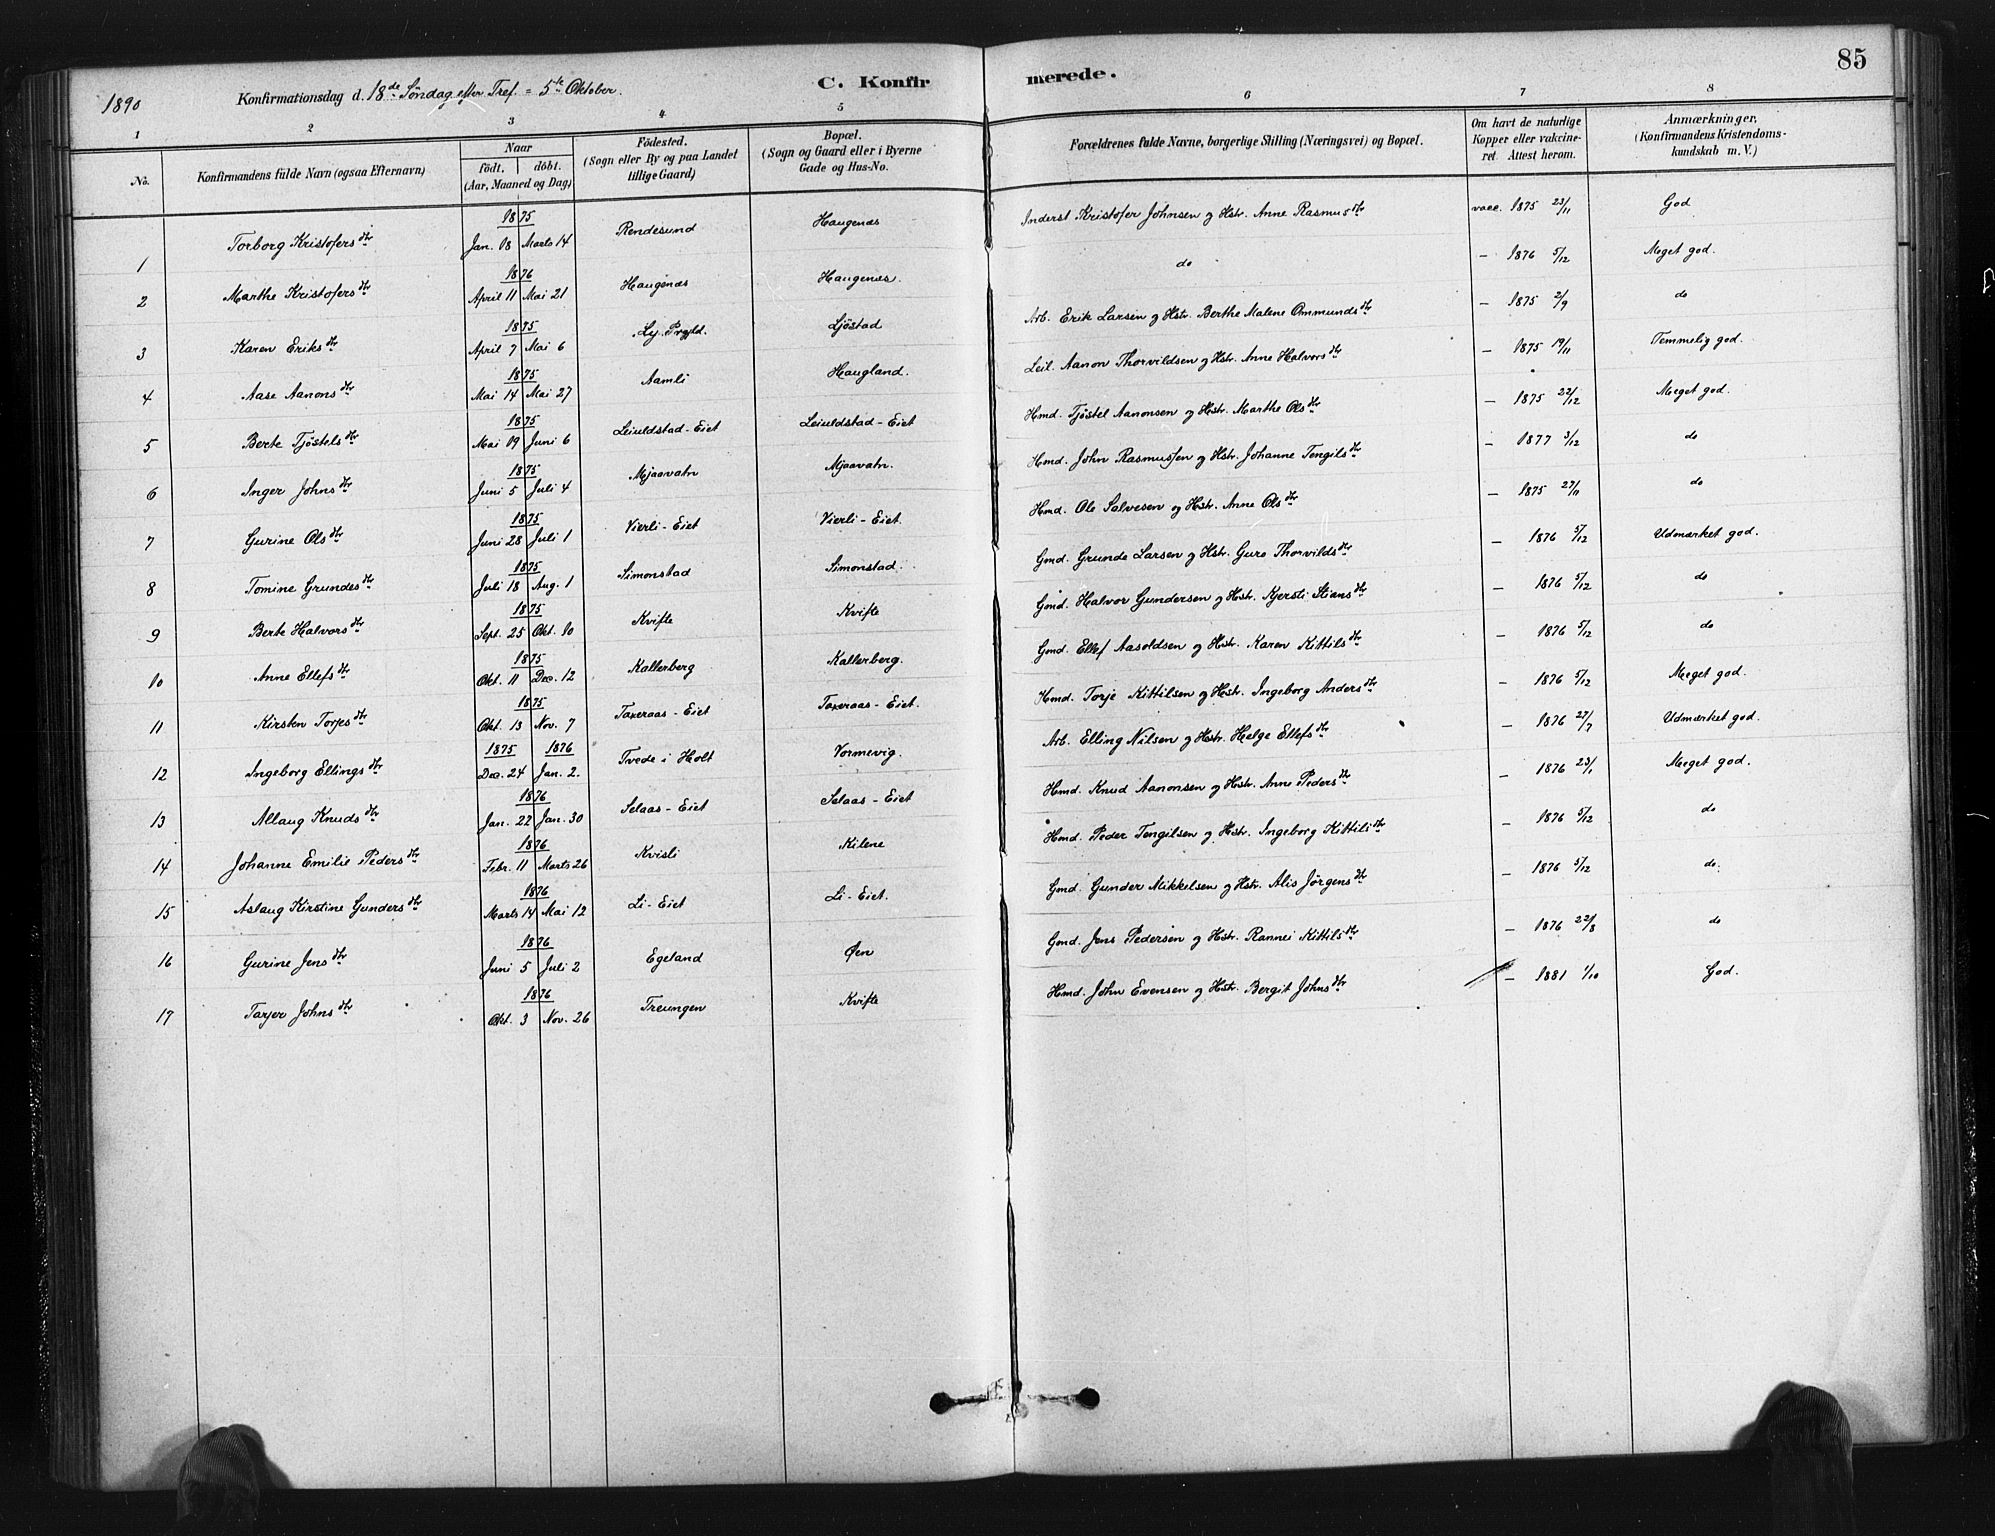 85
1890 Konfirmationsdag d. 18de Søndag efter Tref. = 5te Oktober. C. Konfirmerede.
1 2 3 4 5 6 7 8
No. Konfirmandens fulde Navn (ogsaa Efternavn) Naar födt. döbt. (Aar, Maaned og Dag) Födested. (Sogn eller By og paa Landet tillige Gaard) Bopæl. (Sogn og Gaard eller i Byerne Gade og Hus-No. Forældrenes fulde Navne, borgerlige Stilling (Næringsvei) og Bopæl. Om havt de naturlige Kopper eller vakcineret. Attest herom. Anmærkninger. (Konfirmandens Kristendomskundskab m. V.)
1 Torborg Kristofersdtr 1875 Jan. 18 Marts 14 Rendesund Haugenæs Inderst Kristofer Johnsen og Hstr. Anne Rasmusdtr vacc. 1875 23/11 God
2 Marthe Kristofersdtr 1876 April 11 Mai 21 Haugenæs Haugenæs. do — 1876 5/12 Meget god.
3 Karen Eriksdtr 1875 April 7 Mai 6 Ly. Prgjld. Ljøstad Arb. Erik Larsen og Hstr. Berthe Malene Ommundsdtr — 1875 2/9 do
4 Aase Aanonsdtr 1875 Mai 14 Mai 27 Aamli Haugland. Leil. Aanon Thorvildsen og Hstr. Anne Halvorsdtr — 1875 19/11 Temmelig god.
5 Berte Tjøstelsdtr 1875 Mai 19 Juni 6 Leiuldstad-Eiet Leiuldstad-Eiet Hmd. Tjøstel Aanonsen og Hstr. Marthe Olsdtr — 1875 22/12 Meget god.
6 Inger Johnsdtr 1875 Juni 5 Juli 4 Mjaavatn Mjaavatn. Hmd. John Rasmussen og Hstr. Johanne Tengilsdtr — 1877 3/12 do
7 Gurine Olsdtr 1875 Juni 28 Juli 1 Vierli-Eiet Vierli-Eiet. Hmd. Ole Salvesen og Hstr. Anne Olsdtr — 1875 27/11 do
8 Tomine Grundesdtr 1875 Juli 18 Aug. 1 Simonstad Simonstad Gmd. Grunde Larsen og Hstr. Guro Thorvildsdtr — 1876 5/12 Udmærket god.
9 Berte Halvorsdtr 1875 Sept. 25 Okt. 10 Kvifte Kvifte Gmd. Halvor Gundersen og Hstr. Kjersti Stiansdtr — 1876 5/12 do
10 Anne Ellefsdtr 1875 Okt. 11 Dec. 12 Kallerberg Kallerberg. Gmd. Ellef Aasoldsen og Hstr. Karen Kittilsdtr — 1876 5/12 do
11 Kirsten Torjesdtr 1875 Okt. 13 Nov. 7 Taxeraas-Eiet Taxeraas-Eiet. Hmd. Torje Kittilsen og Hstr. Ingeborg Andersdtr — 1876 5/12 Meget god.
12 Ingeborg Ellingsdtr 1875 Dec. 24 1876 Jan. 2. Tvede i Holt Vormevig. Arb. Elling Nilsen og Hstr. Helge Ellefsdtr — 1876 27/7 Udmærket god.
13 Allaug Knudsdtr 1876 Jan. 22 Jan. 30 Selaas-Eiet Selaas-Eiet Hmd. Knud Aanonsen og Hstr. Anne Pedersdtr — 1876 23/1 Meget god.
14 Johanne Emilie Pedersdtr 1876 Febr. 11 Marts 26 Kvisli Kilene Hmd. Peder Tengilsen og Hstr. Ingeborg Kittilsdtr — 1876 5/12 do
15 Aslaug Kirstine Gundersdtr 1876 Marts 14 Mai 12 Li-Eiet Li-Eiet. Gmd. Gunder Mikkelsen og Hstr. Alis Jörgensdtr — 1876 5/12 do.
16 Gurine Jensdtr 1876 Juni 5 Juli 2 Egeland Øen Gmd. Jens Pedersen og Hstr. Rannei Kittilsdtr — 1876 22/8 do
17 Tarjer Johnsdtr 1876 Okt. 3 Nov. 26 Treungen Kvifte Hmd. John Evensen og Hstr. Bergit Johnsdtr — 1881 1/10 God.